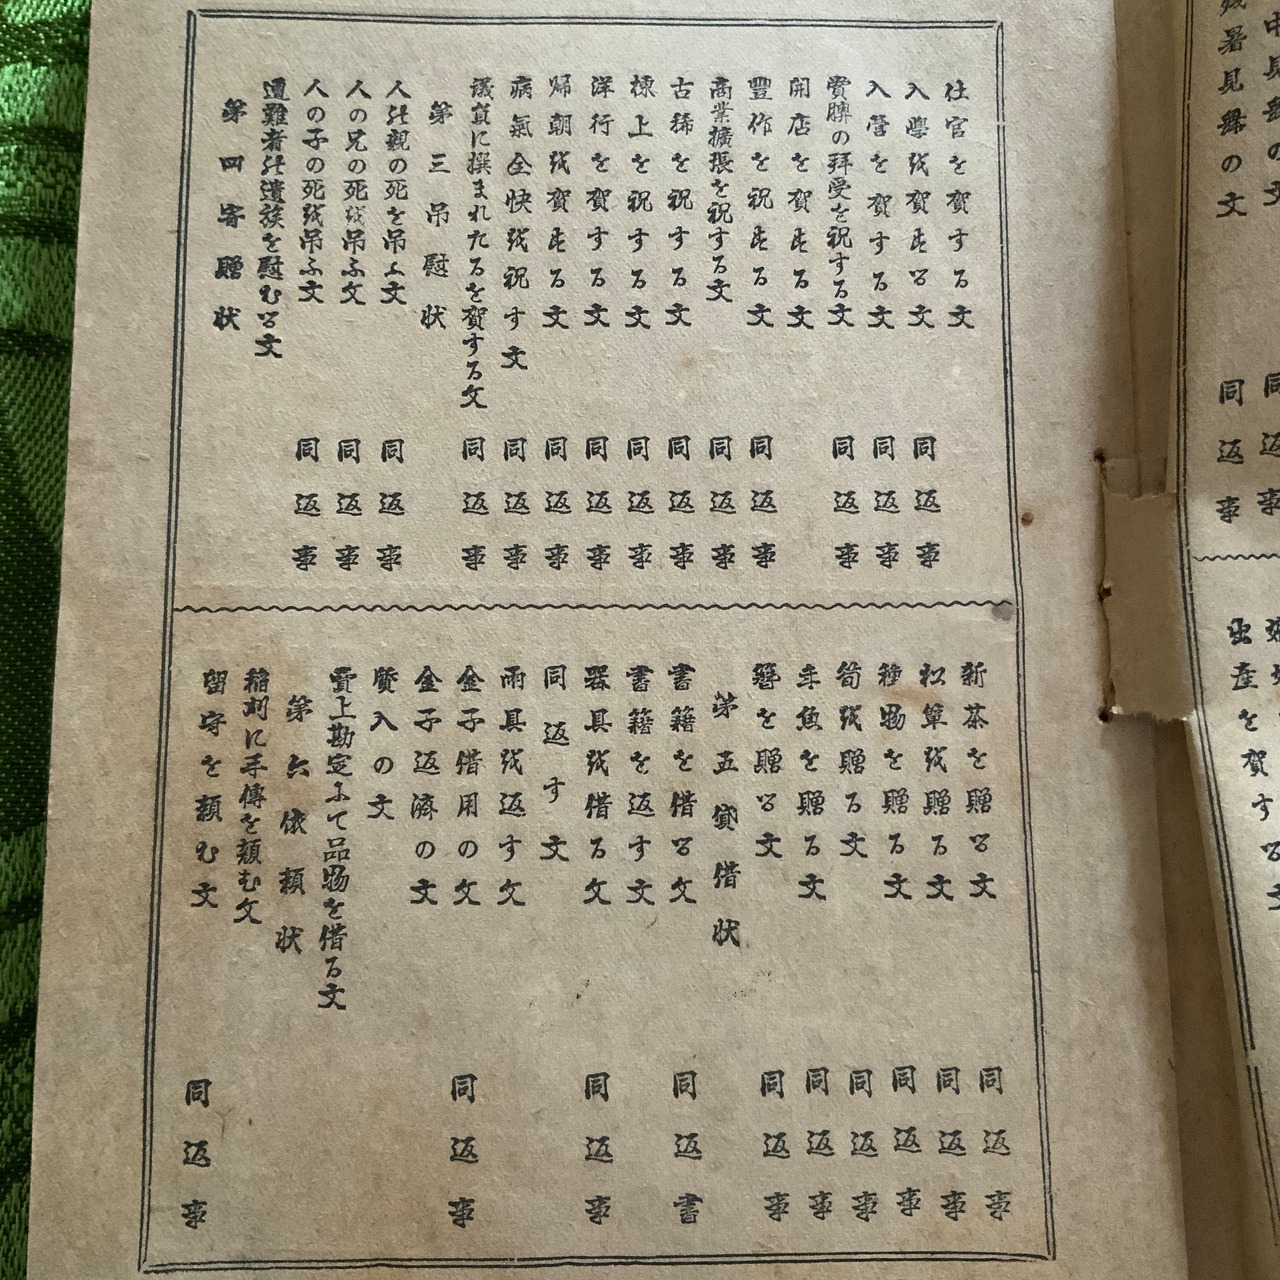 残暑見舞の文 同返事
出産を賀する文
仕官を賀する文
入學を賀する文 同返事
入營を賀する文 同返事
賞牌の拜受を祝する文 同返事
開店を賀する文
豐作を祝する文 同返事
商業擴張を祝する文 同返事
古稀を祝する文 同返事
棟上を祝する文 同返事
洋行を賀する文 同返事
歸朝を賀する文 同返事
病氣全快を祝す文 同返事
議員に撰まれたるを賀する文 同返事
第三吊慰状
人の親の死を吊ふ文 同返事
人の兄の死を吊ふ文 同返事
人の子の死を吊ふ文 同返事
遭難者の遺族を慰むる文
第四寄贈状
新茶を贈る文 同返事
松簟を贈る文 同返事
種物を贈る文 同返事
筍を贈る文 同返事
年魚を贈る文 同返事
を贈る文 同返事
第五貸借状
書籍を借る文 同返書
書籍を返す文
器具を借る文 同返事
同返す文
雨具を返す文
金子借用の文 同返事
金子返濟の文
質入の文
賣上勘定にて品物を借る文
第六依頼状
稲刈に手傳を頼む文
留守を頼む文 同返事